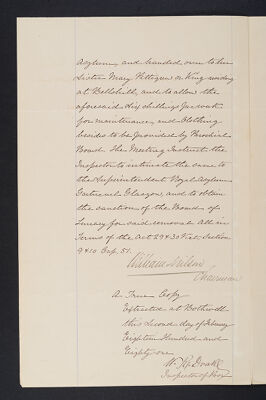 Asylum, and handed over to her
Sister Mary Pettigrew or King residing
at Bellshill, and to allow the
aforesaid six shillings per week
for maintenance, and Clothing
besides to be provided by Parochial
Board. The Meeting Instruct the
Inspector to intimate the same to
the Superintendent Royal Asylum
Gartnavel Glasgow, and to obtain
the sanction of the Board of
Lunacy for said removal all in
Terms of the Act 29 & 30 Vict. Section
9 & 10 Cap. 51.
William Wilson
Chairman
A True Copy
Extracted at Bothwell
this Second day of February
Eighteen Hundred and
Eighty one
Inspector of Poor